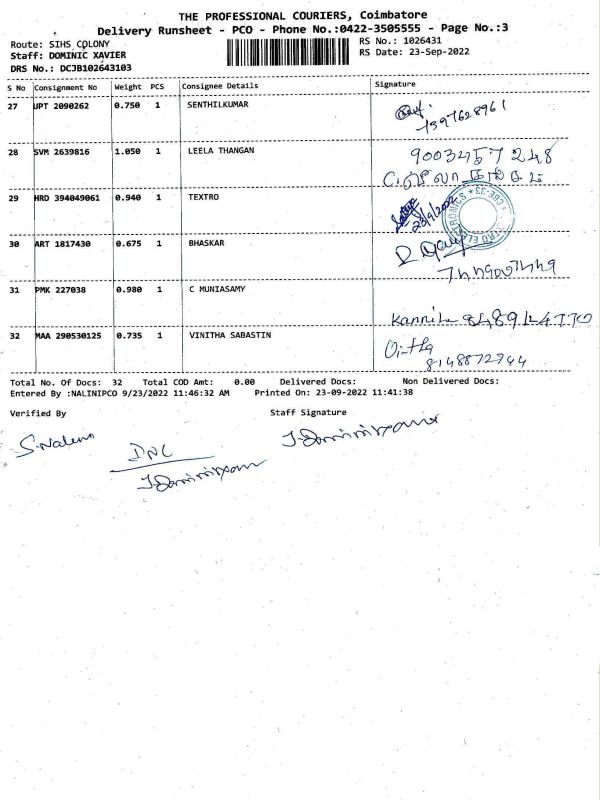 THE PROFESSIONAL COURIERS, Coimbatore
Delivery Runsheet - PCO - Phone No.:0422-3505555 - Page No.:3
Route: SIHS COLONY
RS No.: 1026431
Staff: DOMINIC XAVIER
RS Date: 23-Sep-2022
DRS No.: DCJB102643103
S No Consignment No Weight PCS Consignee Details Signature
27 UPT 2090262 0.750 1 SENTHILKUMAR
28 SVM 2639816 1.050 1 LEELA THANGAN
9003457248
29 HRD 394049061 0.940 1 TEXTRO
23/9/2022
30 ART 1817430 0.675 1 BHASKAR
31 PMK 227038 0.980 1 C MUNIASAMY
32 MAA 290530125 0.735 1 VINITHA SABASTIN
8148872744
Total No. Of Docs: 32 Total COD Amt: 0.00 Delivered Docs: Non Delivered Docs:
Entered By :NALINIPCO 9/23/2022 11:46:32 AM Printed On: 23-09-2022 11:41:38
Verified By Staff Signature